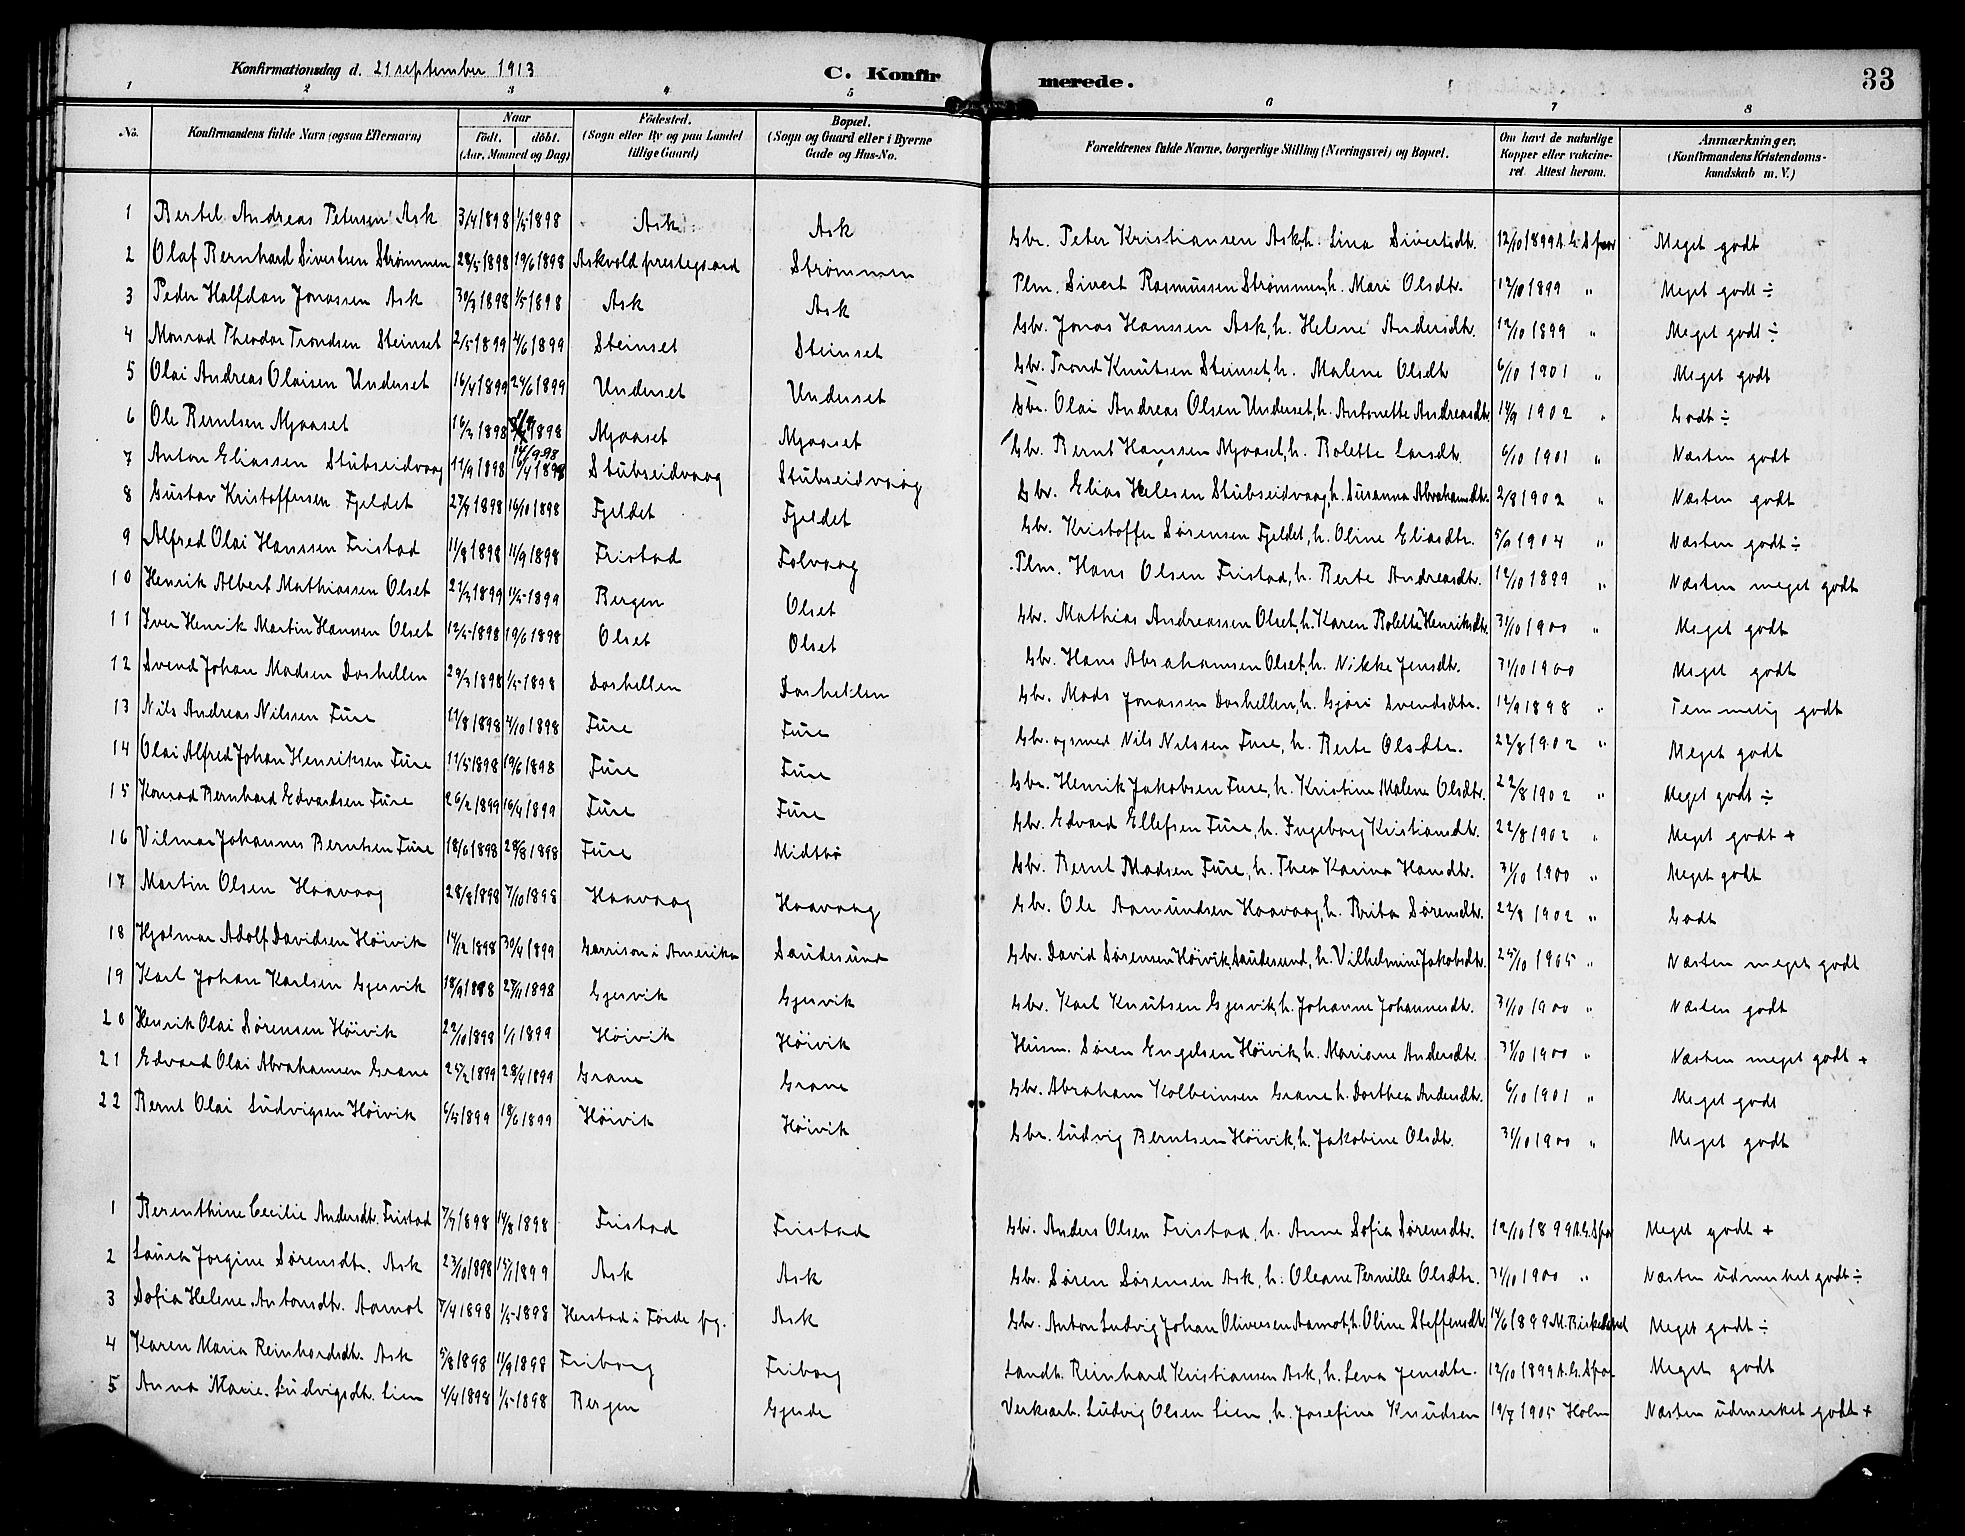 Konfirmationsdag d. 21 september 1913
C. Konfir merede.
33
1 2 3 4 5 6 7 8
No. Konfirmandens fulde Navn (ogsaa Efternavn) Naar født. døbt. (Aar, Maaned og Dag) Fødested. (Sogn eller By og paa Landet tillige Gaard) Bopæl. (Sogn og Gaard eller i Byerne Gade og Hus-No. Forældrenes fulde Navne, borgerlige Stilling (Næringsvei) og Bopæl. Om havt de naturlige Kopper eller vakcineret. Attest herom. Anmærkninger. (Konfirmandens Kristendomskundskab m. V.)
1 Bertel Andreas Petersen Ask 3/4 1898 1/5 1898 Ask Ask Gbr. Peter Kristiansen Ask, h. Lina Sivertsdtr. 12/10 1899 Meget godt
2 Olaf Bernhard Sivertsen Strømmen 28/5 1898 19/6 1898 Askvold prestegaard Strømmen Plm. Sivert Rasmussen Strømmen, h. Mari Olsdtr. 12/10 1899 " Meget godt ÷
3 Peder Halfdan Jonassen Ask 30/3 1898 1/5 1898 Ask Ask Gbr. Jonas Hanssen Ask, h. Helene Andersdtr. 12/10 1899 " Meget godt ÷
4 Monrad Theodor Trondsen Steinset 2/5 1899 4/6 1899 Steinset Steinset Gbr. Trond Knutsen Steinset, h. Malene Olsdtr 6/10 1901 " Meget godt
5 Olai Andreas Olaisen Underset 16/4 1899 24/6 1899 Underset Underset Gbr. Olai Andreas Olsen Underset, h. Antonette Andreasdtr. 1902 " Godt ÷
6 Ole Berntsen Mjaaset 16/3 1898 1898 Mjaaset Mjaaset Gbr. Bernt Hanssen Mjaaset, h. Bolette Larsdtr. 6/10 1901 " Næsten godt
7 Anton Eliassen Stubseidvaag 1898 Stubseidvaag Stubseidvaag Gbr. Elias Helesen Stubseidvaag, h. Susanna Abrahamsdtr. 2/8 1902 " Næsten godt
8 Gustav Kristoffersen Fjeldet 1898 16/10 1898 Fjeldet Fjeldet Gbr. Kristoffer Sørensen Fjeldet, h. Oline Eliasdtr. 5/9 1904 " Næsten godt ÷
9 Alfred Olai Hanssen Fristad 11/8 1898 11/9 1898 Fristad Folvaag Plm. Hans Olsen Fristad, h. Berte Andreasdtr. 12/10 1899 " Næsten meget godt
10 Henrik Albert Mathiassen Olset 1899 1/5 1899 Bergen Olset Gbr. Mathias Andreassen Olset, h. Karen Bolette Henriksdtr. 31/10 1900 " Meget godt
11 Iver Henrik Martin Hanssen Olset 12/5 1898 19/6 1898 Olset Olset Gbr. Hans Abrahamsen Olset, h. Nikke Jensdtr. 31/10 1900 Meget godt
12 Svend Johan Madsen Dashellen 29/3 1898 1/5 1898 Dashellen Dashellen Gbr. Mads Jonassen Dashellen, h. Gjøri Svendsdtr. 12/9 1898 " Temmelig godt
13 Nils Andreas Nilssen Fure 1898 1898 Fure Fure Gbr. og smed Nils Nilssen Fure, h. Berte Olsdtr. 22/8 1902 " Meget godt
14 Olai Alfred Johan Henriksen Fure 1898 19/6 1898 Fure Fure Gbr. Henrik Jakobsen Fure, h. Kristine Malene Olsdtr. 22/8 1902 " Meget godt ÷
15 Konrad Bernhard Edvardsen Fure 26/2 1899 16/4 1899 Fure Fure Gbr. Edvard Ellefsen Fure, h. Ingeborg Kristiansdtr. 22/8 1902 " Meget godt +
16 Vilmar Johannes Berntsen Fure 18/6 1898 28/8 1898 Fure Midtbø Gbr. Bernt Madsen Fure, h. Thea Karina Hansdtr. 31/10 1900 " Meget godt
17 Martin Olsen Haavaag 28/8 1898 7/10 1898 Haavaag Haavaag Gbr. Ole Aamundsen Haavaag, h. Brita Sørensdtr. 22/8 1902 " Godt
18 Hjalmar Adolf Davidsen Høivik 14/12 1898 30/4 1899 Garrison i Amerika Saudesund Gbr. David Sørensen Høivik, Saudesund, h. Vilhelmine Jakobsdtr. 25/10 1905 " Næsten meget godt
19 Karl Johan Karlsen Gjervik 18/9 1898 27/11 1898 Gjervik Gjervik Gbr. Karl Knutsen Gjervik, h. Johanne Johannesdtr. 31/10 1900 " Næsten godt
20 Henrik Olai Sørensen Høivik 22/10 1898 1/1 1899 Høivik Høivik Husm. Søren Engelsen Høivik, h. Mariane Andersdtr. 31/10 1900 " Næsten meget godt +
21 Edvard Olai Abrahamsen Grane 25/2 1899 23/4 1899 Grane Grane Gbr. Abraham Kolbeinsen Grane h. Dorthea Andersdtr. 6/10 1901 " Meget godt
22 Bernt Olai Ludvigsen Høivik 6/5 1899 18/6 1899 Høivik Høivik Gbr. Ludvig Berntsen Høivik, h. Jakobine Olsdtr. 31/10 1900 " Meget godt
1 Berenthine Cecilie Andersdtr. Fristad 7/7 1898 14/8 1898 Fristad Fristad Gbr. Anders Olsen Fristad, h. Anne Sofia Sørensdtr. 12/10 1899 Meget godt +
2 Laura Jorgine Sørensdtr. Ask 23/10 1898 15/1 1899 Ask Ask Gbr. Søren Sørensen Ask, h. Oleane Pernille Olsdtr. 31/10 1900 " Næsten udmerket godt ÷
3 Sofia Helene Antonsdtr. Aamot 1898 1/5 1898 Herstad i Førde pg. Ask Gbr. Anton Ludvig Johan Oliversen Aamot, h. Oline Steffensdtr. 14/6 1899 Meget godt ÷
4 Karen Maria Reinhardsdtr. Ask 5/8 1898 11/9 1898 Friborg Friborg Landh. Reinhard Kristiansen Ask, h. Lena Jensdtr. 12/10 1899 Meget godt
5 Anna Marie Ludvigsdtr. Lien 4/4 1898 1/5 1898 Bergen Gjerde Verksarb. Ludvig Olsen Lien, h. Josefine Knudsen 19/7 1905 Holm Næsten udmerket godt +